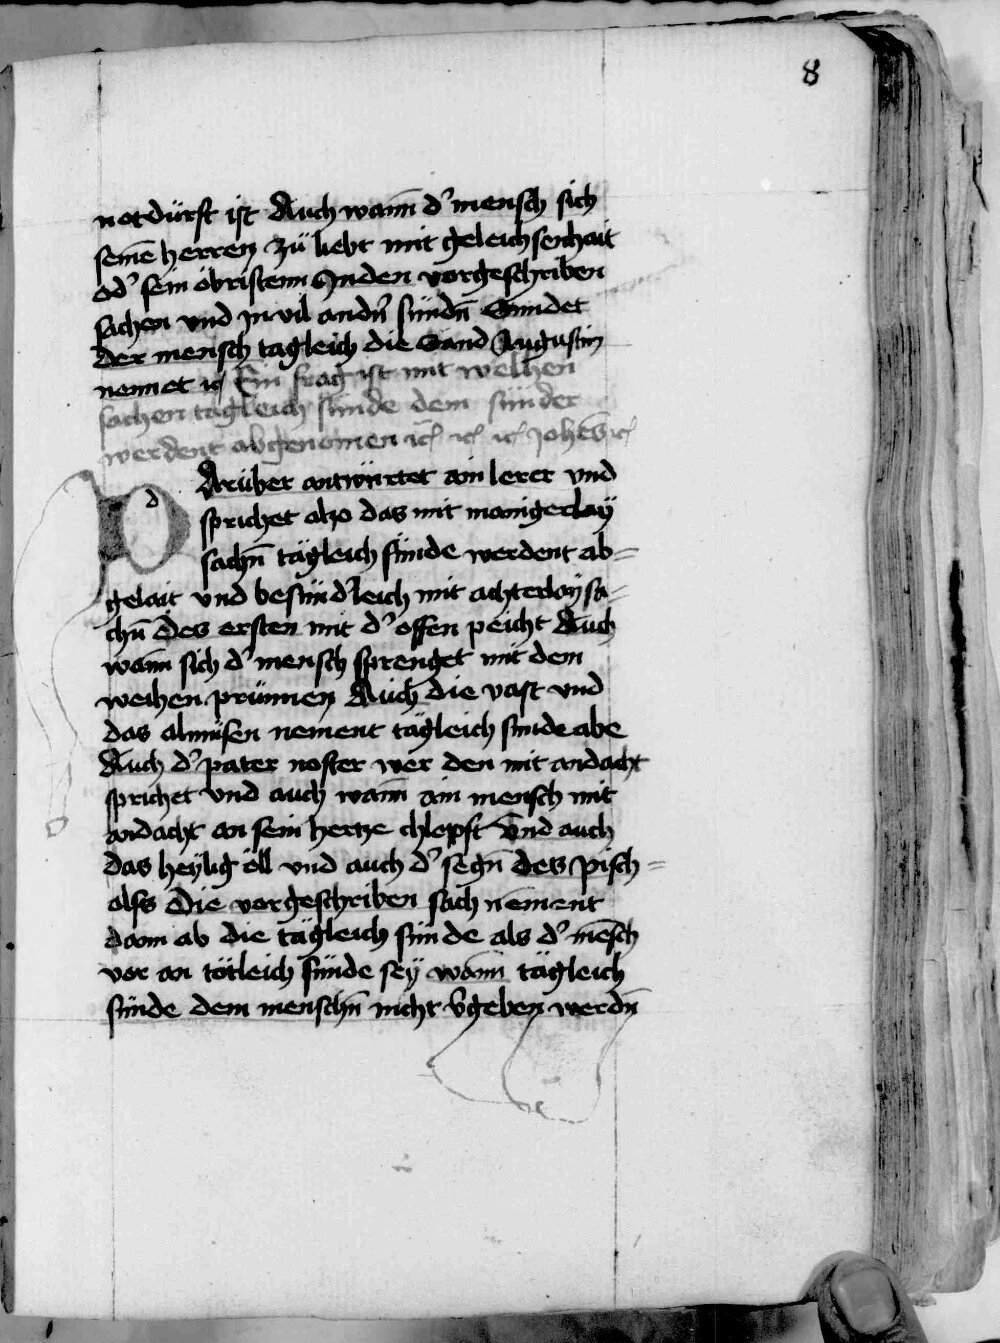 8
notdürft ist Auch wann̄ d' mensch sich
seinē herren zü liebt mit geleichsenhait
od' sein öbristenn Inden vorgeschriben
sachen vnd jn vil andn̄ sündn̄ Sundet
der mensch tagleich die Sand Augustin
nennet ꝛc Ein frag ist mit welhen
sachen tägleich sünde dem sünder
werdent abgenomen ꝛc ꝛc ꝛc
d Arüber antwürtet ain lerer vnd
sprichet also das mit manigerlay
sachn̄ tägleich sünde werdent ab=
gelait vnd besünd'leich mit achterlay sa=
chn̄ Des ersten mit d' offen peicht Auch
wann sich d' mensch sprenget mit dem
weihen prünnen Auch die vast vnd
das almüsen nement tägleich sünde abe
Auch d' pater noster wer den mit andacht
sprichet vnd auch wann̄ ain mensch mit
andacht an sein hertze chlopft Vnd auch
das heylig öll vnd auch d' segn̄ des pisch=
olfs Die vorgeschriben sach nement
dann ab die tägleich sünde als d' mēsch
vor an tötleich sünde sey wann̄ tägleich
sünde dem menschn̄ nicht v̄geben werdn̄